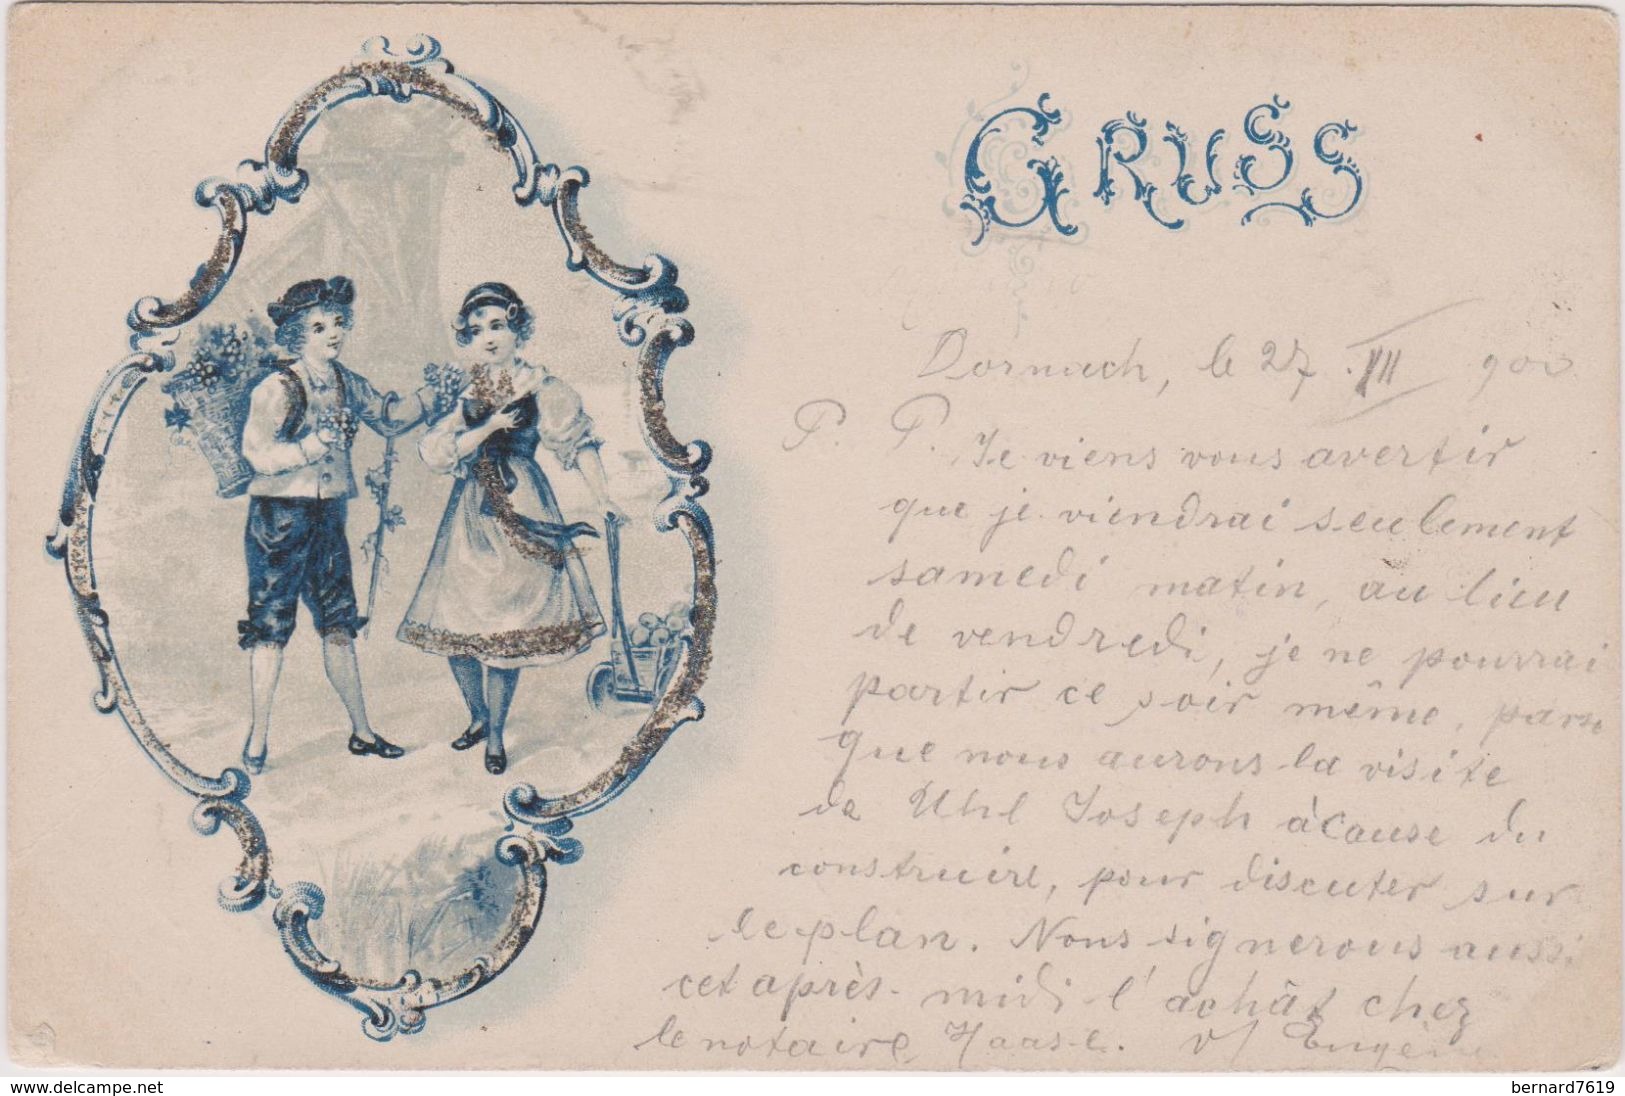 GRUSS
Dornach, le 27. XII 900
P. P. Je viens vous avertir
que je viendrai seulement
samedi matin, au lieu
de vendredi, je ne pourrai
partir ce soir même, parse
que nous aurons la visite
de Uhl Joseph à cause du
construire, pour discuter sur
le plan. Nous signerons aussi
cet après-midi l'achât chez
le notaire Haase. v/ Eugène
www.delcampe.net
bernard7619